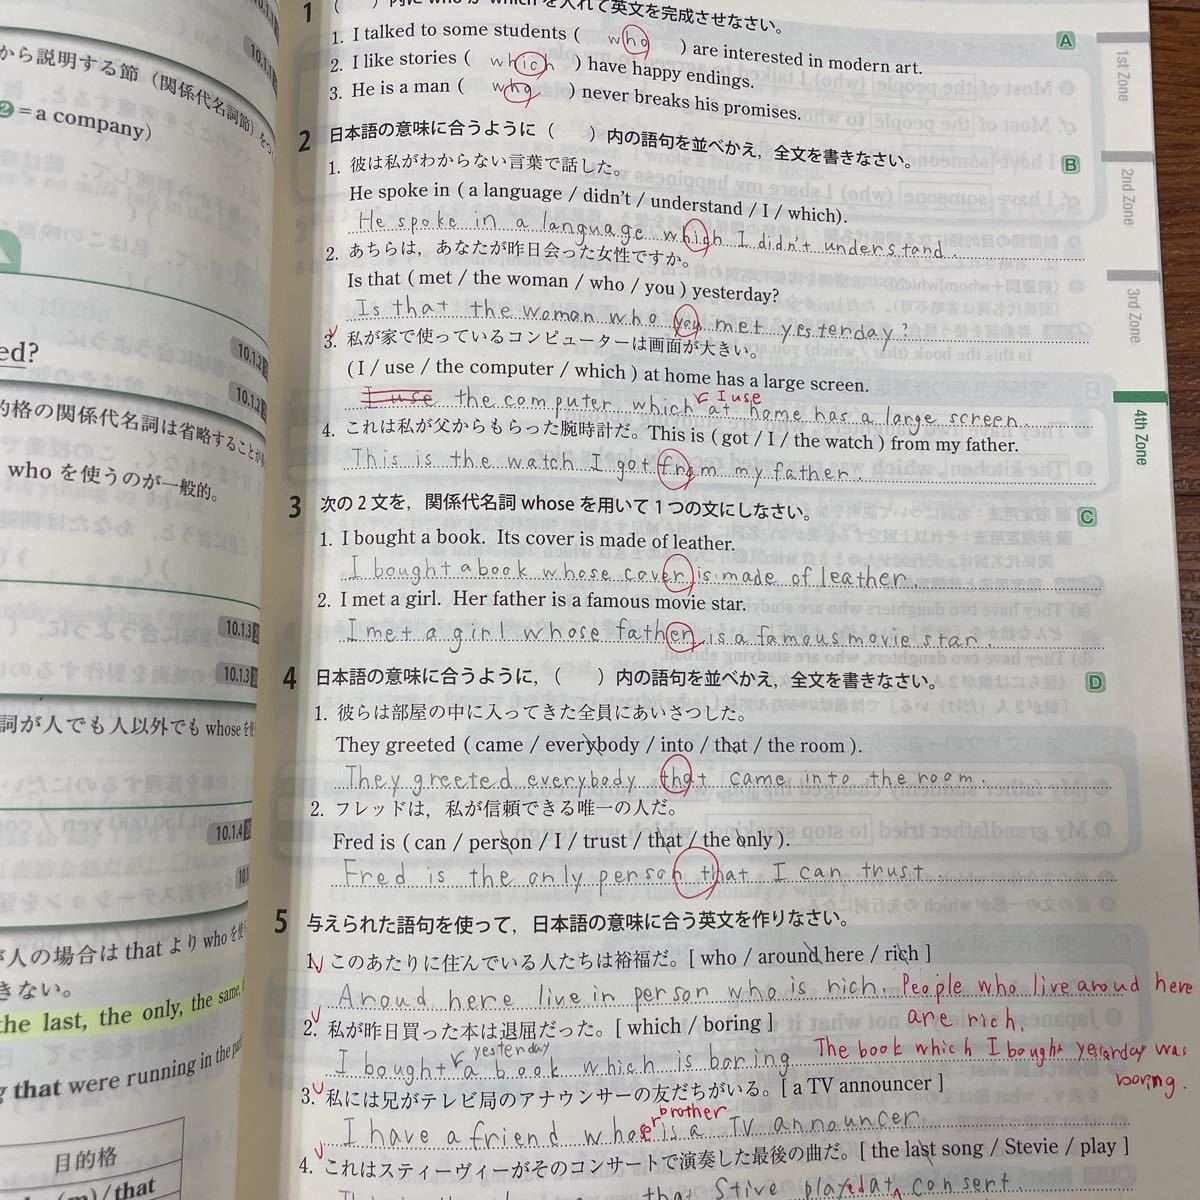 1 (　　) 内に who か which を入れて英文を完成させなさい。
A
1. I talked to some students ( who ) are interested in modern art.
2. I like stories ( which ) have happy endings.
3. He is a man ( who ) never breaks his promises.
2 日本語の意味に合うように (　　) 内の語句を並べかえ，全文を書きなさい。
B
1. 彼は私がわからない言葉で話した。
He spoke in ( a language / didn't / understand / I / which).
He spoke in a language which I didn't understand.
2. あちらは，あなたが昨日会った女性ですか。
Is that ( met / the woman / who / you ) yesterday?
Is that the woman who you met yesterday?
3. 私が家で使っているコンピューターは画面が大きい。
( I / use / the computer / which ) at home has a large screen.
I use the computer which I use at home has a large screen.
4. これは私が父からもらった腕時計だ。This is ( got / I / the watch ) from my father.
This is the watch I got from my father.
3 次の2文を，関係代名詞 whose を用いて1つの文にしなさい。
C
1. I bought a book. Its cover is made of leather.
I bought a book whose cover is made of leather
2. I met a girl. Her father is a famous movie star.
I met a girl whose father is a famous movie star.
4 日本語の意味に合うように，(　　) 内の語句を並べかえ，全文を書きなさい。
D
1. 彼らは部屋の中に入ってきた全員にあいさつした。
They greeted ( came / everybody / into / that / the room ).
They greeted everybody that came into the room.
2. フレッドは，私が信頼できる唯一の人だ。
Fred is ( can / person / I / trust / that / the only ).
Fred is the only person that I can trust
5 与えられた語句を使って，日本語の意味に合う英文を作りなさい。
1. このあたりに住んでいる人たちは裕福だ。[ who / around here / rich ]
Aroud here live in person who is rich. People who live aroud here
are rich.
2. 私が昨日買った本は退屈だった。[ which / boring ]
yesterday
I bought a book which is boring The book which I bought yesterday was
boring.
3. 私には兄がテレビ局のアナウンサーの友だちがいる。[ a TV announcer ]
brother
I have a friend whose is a TV announcer.
4. これはスティーヴィーがそのコンサートで演奏した最後の曲だ。[ the last song / Stevie / play ]
that Stive played at consert.
1st Zone
2nd Zone
3rd Zone
4th Zone
10.1.1
から説明する節（関係代名詞節）をつ
❷=a company）
ed?
10.1.2
10.1.2
的格の関係代名詞は省略することが
who を使うのが一般的。
10.1.3
10.1.3
詞が人でも人以外でも whose を使
10.1.4
が人の場合は that より who を使
きない。
the last, the only, the same,
that were running in the
目的格
(m)/that